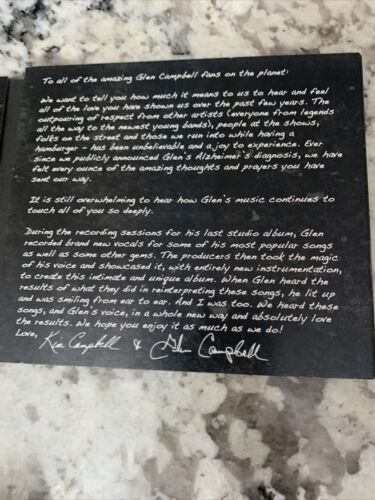 To all of the amazing Glen Campbell fans on the planet:
We want to tell you how much it means to us to hear and feel
all of the love you have shown us over the past few years. The
outpouring of respect from other artists (everyone from legends
all the way to the newest young bands), people at the shows,
folks on the street and those we run into while having a
hamburger - has been unbelievable and a joy to experience. Ever
since we publicly announced Glen's Alzheimer's diagnosis, we have
felt every ounce of the amazing thoughts and prayers you have
sent our way.
It is still overwhelming to hear how Glen's music continues to
touch all of you so deeply.
During the recording sessions for his last studio album, Glen
recorded brand new vocals for some of his most popular songs
as well as some other gems. The producers then took the magic
of his voice and showcased it, with entirely new instrumentation,
to create this intimate and unique album. When Glen heard the
results of what they did in reinterpreting these songs, he lit up
and was smiling from ear to ear. And I was too. We heard these
songs, and Glen's voice, in a whole new way and absolutely love
the results. We hope you enjoy it as much as we do!
Love,
Kim Campbell & Glen Campbell